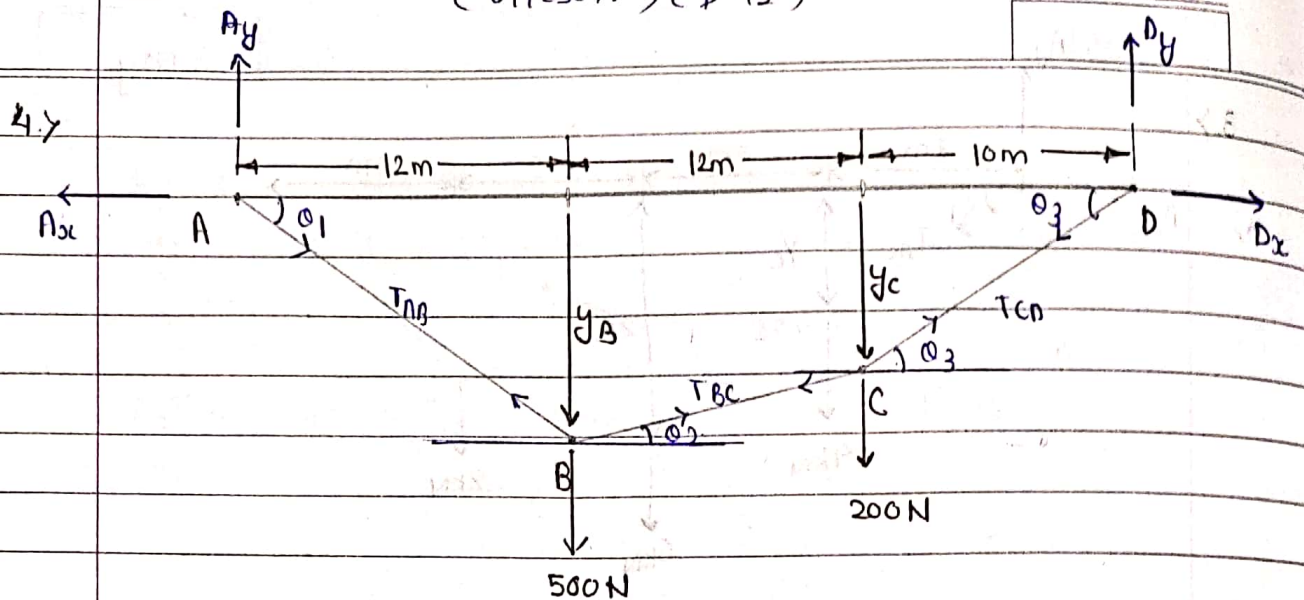 Ay
Dy
4.>
12m
12m
10m
Ax
A
θ1
θ3
D
Dx
TAB
yB
yC
TCD
θ3
TBC
C
θ2
B
200N
500N